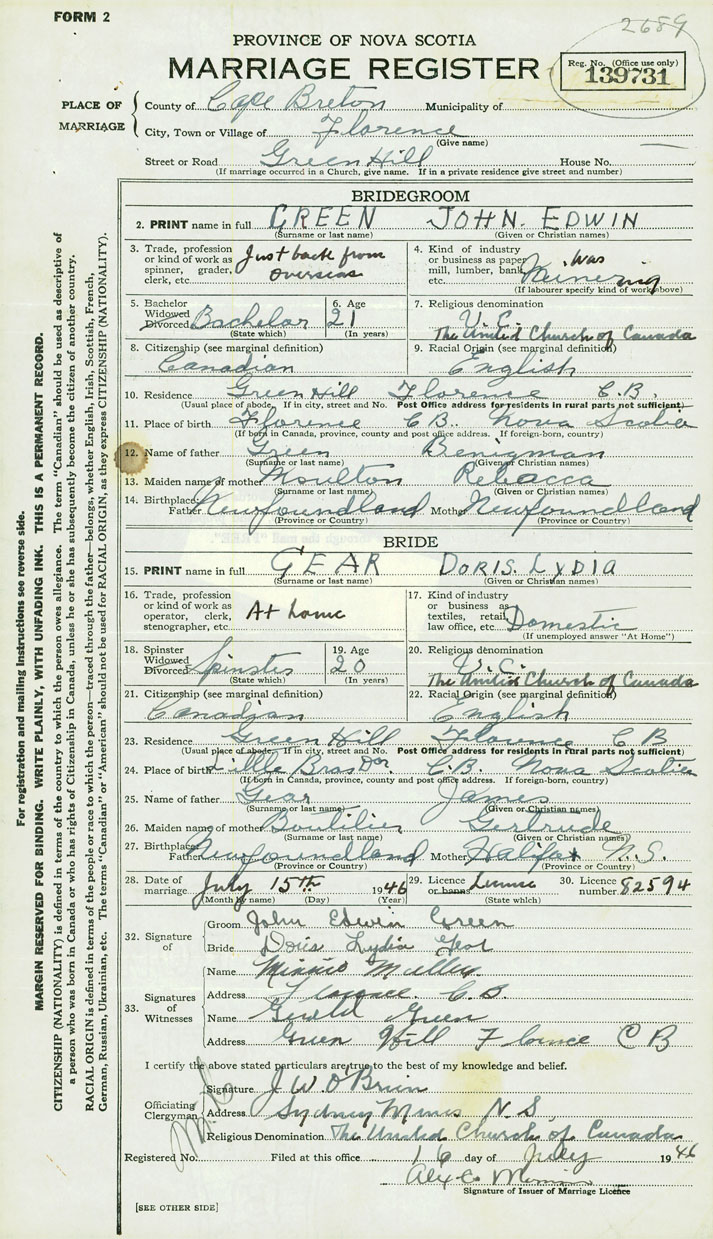 FORM 2
2689
PROVINCE OF NOVA SCOTIA
MARRIAGE REGISTER
Reg. No. (Office use only)
139731
PLACE OF MARRIAGE
County of Cape Breton Municipality of
City, Town or Village of Florence
(Give name)
Street or Road Green Hill House No.
(If marriage occurred in a Church, give name. If in a private residence give street and number)
BRIDEGROOM
2. PRINT name in full GREEN JOHN. EDWIN
(Surname or last name) (Given or Christian names)
3. Trade, profession or kind of work as spinner, grader, clerk, etc. Just back from overseas
4. Kind of industry or business as paper mill, lumber, bank, etc. was
(If labourer specify kind of work above)
5. Bachelor Widowed Divorced Bachelor
(State which)
6. Age 21
(In years)
7. Religious denomination
U.C.
The United Church of Canada
8. Citizenship (see marginal definition)
Canadian
9. Racial Origin (see marginal definition)
English
10. Residence Green Hill Florence C.B.
(Usual place of abode. If in city, street and No. Post Office address for residents in rural parts not sufficient)
11. Place of birth Florence C.B. Nova Scotia
(If born in Canada, province, county and post office address. If foreign-born, country)
12. Name of father Green Benigman
(Surname or last name) (Given or Christian names)
13. Maiden name of mother Moulton Rebacca
(Surname or last name) (Given or Christian names)
14. Birthplace: Father Newfoundland Mother Newfoundland
(Province or Country) (Province or Country)
BRIDE
15. PRINT name in full GEAR DORIS. LYDIA
(Surname or last name) (Given or Christian names)
16. Trade, profession or kind of work as operator, clerk, stenographer, etc. At home
17. Kind of industry or business as textiles, retail, law office, etc. Domestic
(If unemployed answer "At Home")
18. Spinster Widowed Divorced Spinster
(State which)
19. Age 20
(In years)
20. Religious denomination
U.C.
The United Church of Canada
21. Citizenship (see marginal definition)
Canadian
22. Racial Origin (see marginal definition)
English
23. Residence Green Hill Florence C B
(Usual place of abode. If in city, street and No. Post Office address for residents in rural parts not sufficient)
24. Place of birth Little Bras Dor C.B. Nova Scotia
(If born in Canada, province, county and post office address. If foreign-born, country)
25. Name of father Gear James
(Surname or last name) (Given or Christian names)
26. Maiden name of mother Boutilier Gertrude
(Surname or last name) (Given or Christian names)
27. Birthplace: Father Newfoundland Mother Halifax N.S.
(Province or Country) (Province or Country)
28. Date of marriage July 15th 1946
(Month by name) (Day) (Year)
29. Licence or banns License
(State which)
30. Licence number 82594
32. Signature of
Groom John Edwin Green
Bride Doris Lydia Gear
33. Signatures of Witnesses
Name Minnie
Address Florence. C.B.
Name Gerald Green
Address Green Hill Florence C B
I certify the above stated particulars are true to the best of my knowledge and belief.
Officiating Clergyman
Signature J. W. O'Brien
Address Sydney Mines N.S.
Religious Denomination The United Church of Canada
Registered No. Filed at this office 16 day of July 1946
Signature of Issuer of Marriage Licence
[SEE OTHER SIDE]
For registration and mailing instructions see reverse side.
MARGIN RESERVED FOR BINDING. WRITE PLAINLY, WITH UNFADING INK. THIS IS A PERMANENT RECORD.
CITIZENSHIP (NATIONALITY) is defined in terms of the country to which the person owes allegiance. The term "Canadian" should be used as descriptive of
a person who was born in Canada or who has rights of Citizenship in Canada, unless he or she has subsequently become the citizen of another country.
RACIAL ORIGIN is defined in terms of the people or race to which the person—traced through the father—belongs, whether English, Irish, Scottish, French,
German, Russian, Ukrainian, etc. The terms "Canadian" or "American" should not be used for RACIAL ORIGIN, as they express CITIZENSHIP (NATIONALITY).